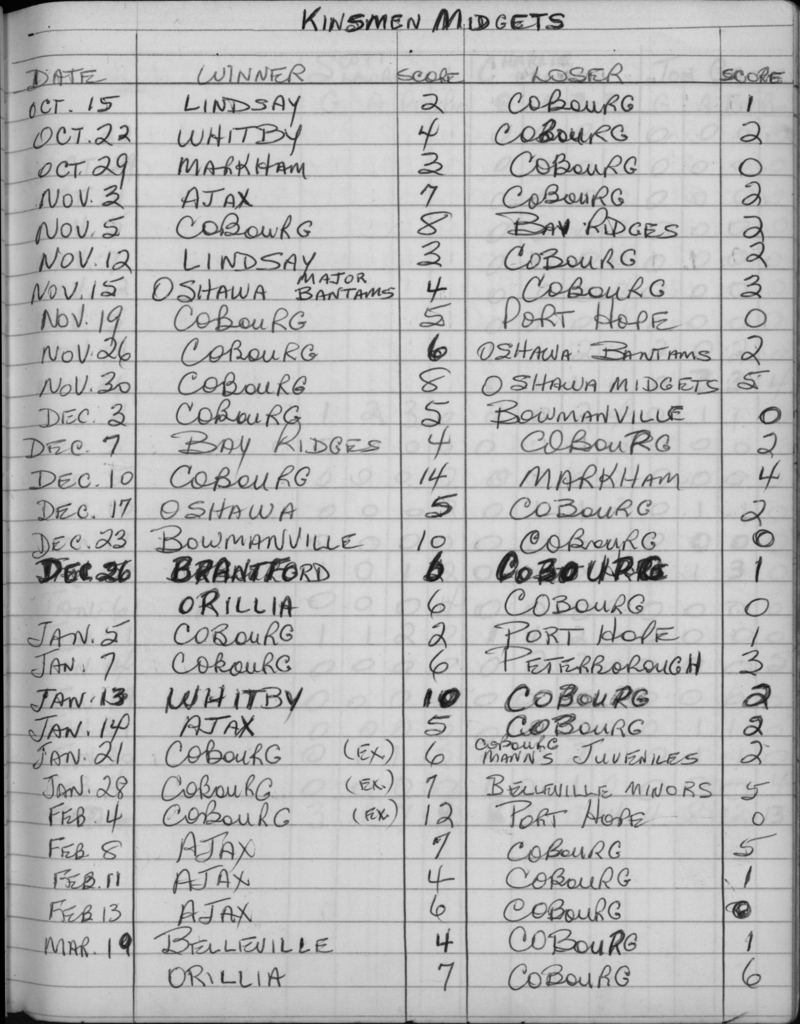 KINSMEN MIDGETS
DATE WINNER SCORE LOSER SCORE
OCT. 15 LINDSAY 2 COBOURG 1
OCT. 22 WHITBY 4 COBOURG 2
OCT. 29 MARKHAM 3 COBOURG 0
NOV. 3 AJAX 7 COBOURG 2
NOV. 5 COBOURG 8 BAY RIDGES 2
NOV. 12 LINDSAY 3 COBOURG 2
NOV. 15 OSHAWA MAJOR BANTAMS 4 COBOURG 3
NOV. 19 COBOURG 5 PORT HOPE 0
NOV. 26 COBOURG 6 OSHAWA BANTAMS 2
NOV. 30 COBOURG 8 OSHAWA MIDGETS 5
DEC. 3 COBOURG 5 BOWMANVILLE 0
DEC. 7 BAY RIDGES 4 COBOURG 2
DEC. 10 COBOURG 14 MARKHAM 4
DEC. 17 OSHAWA 5 COBOURG 2
DEC. 23 BOWMANVILLE 10 COBOURG 0
DEC. 26 BRANTFORD 6 COBOURG 1
ORILLIA 6 COBOURG 0
JAN. 5 COBOURG 2 PORT HOPE 1
JAN. 7 COBOURG 6 PETERBOROUGH 3
JAN. 13 WHITBY 10 COBOURG 2
JAN. 14 AJAX 5 COBOURG 2
JAN. 21 COBOURG (EX) 6 COBOURG MANN'S JUVENILES 2
JAN. 28 COBOURG (EX.) 7 BELLEVILLE MINORS 5
FEB. 4 COBOURG (EX.) 12 PORT HOPE 0
FEB 8 AJAX 7 COBOURG 5
FEB. 11 AJAX 4 COBOURG 1
FEB 13 AJAX 6 COBOURG 0
MAR. 19 BELLEVILLE 4 COBOURG 1
ORILLIA 7 COBOURG 6